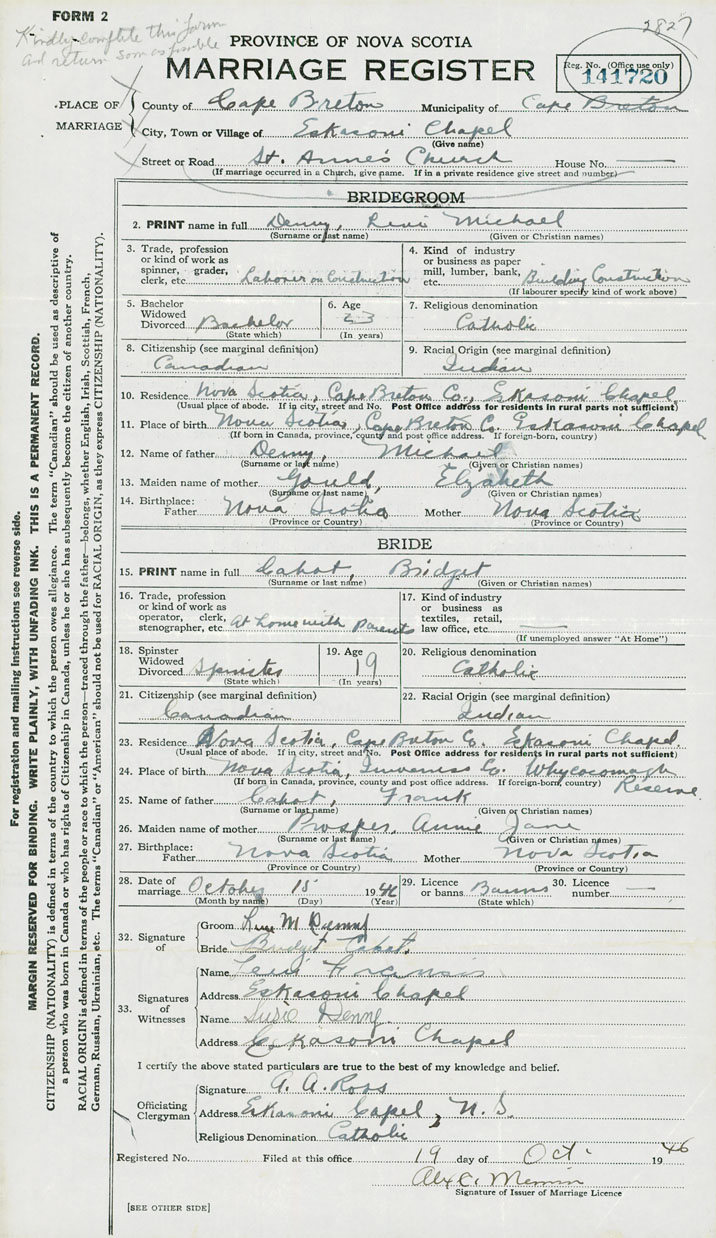 FORM 2
2827
Kindly complete this form
and return soon as possible
PROVINCE OF NOVA SCOTIA
MARRIAGE REGISTER
Reg. No. (Office use only)
141720
PLACE OF MARRIAGE
County of Cape Breton Municipality of Cape Breton
City, Town or Village of Eskasoni Chapel
(Give name)
Street or Road St. Anne's Church House No.
(If marriage occurred in a Church, give name. If in a private residence give street and number)
BRIDEGROOM
2. PRINT name in full Denny, Levi Michael
(Surname or last name) (Given or Christian names)
3. Trade, profession or kind of work as spinner, grader, clerk, etc. Laborer on Construction
4. Kind of industry or business as paper mill, lumber, bank, etc. Building Construction
(If labourer specify kind of work above)
5. Bachelor Widowed Divorced Bachelor
(State which)
6. Age 23
(In years)
7. Religious denomination
Catholic
8. Citizenship (see marginal definition)
Canadian
9. Racial Origin (see marginal definition)
Indian
10. Residence Nova Scotia, Cape Breton Co., Eskasoni Chapel
(Usual place of abode. If in city, street and No. Post Office address for residents in rural parts not sufficient)
11. Place of birth Nova Scotia, Cape Breton Co. Eskasoni Chapel
(If born in Canada, province, county and post office address. If foreign-born, country)
12. Name of father Denny, Michael
(Surname or last name) (Given or Christian names)
13. Maiden name of mother Gould, Elzabeth
(Surname or last name) (Given or Christian names)
14. Birthplace: Father Nova Scotia Mother Nova Scotia
(Province or Country) (Province or Country)
BRIDE
15. PRINT name in full Cabot, Bridget
(Surname or last name) (Given or Christian names)
16. Trade, profession or kind of work as operator, clerk, stenographer, etc. At home with parents
17. Kind of industry or business as textiles, retail, law office, etc.
(If unemployed answer "At Home")
18. Spinster Widowed Divorced Spinster
(State which)
19. Age 19
(In years)
20. Religious denomination
Catholic
21. Citizenship (see marginal definition)
Canadian
22. Racial Origin (see marginal definition)
Indian
23. Residence Nova Scotia, Cape Breton Co. Eskasoni Chapel
(Usual place of abode. If in city, street and No. Post Office address for residents in rural parts not sufficient)
24. Place of birth Nova Scotia, Inverness Co. Whycocomagh Reserve
(If born in Canada, province, county and post office address. If foreign-born, country)
25. Name of father Cabot, Frank
(Surname or last name) (Given or Christian names)
26. Maiden name of mother Prosper, Annie Jane
(Surname or last name) (Given or Christian names)
27. Birthplace: Father Nova Scotia Mother Nova Scotia
(Province or Country) (Province or Country)
28. Date of marriage October 15 1946
(Month by name) (Day) (Year)
29. Licence or banns Banns
(State which)
30. Licence number
32. Signature of
Groom Levi M Denny
Bride Bridget Cabot.
33. Signatures of Witnesses
Name Levi Francis
Address Eskasoni Chapel
Name Susie Denny
Address Eskasoni Chapel
I certify the above stated particulars are true to the best of my knowledge and belief.
Officiating Clergyman
Signature A. A. Ross
Address Eskasoni Capel, N. S.
Religious Denomination Catholic
Registered No. Filed at this office 19 day of Oct. 1946
Alex C.
Signature of Issuer of Marriage Licence
[SEE OTHER SIDE]
For registration and mailing instructions see reverse side.
MARGIN RESERVED FOR BINDING. WRITE PLAINLY, WITH UNFADING INK. THIS IS A PERMANENT RECORD.
CITIZENSHIP (NATIONALITY) is defined in terms of the country to which the person owes allegiance. The term "Canadian" should be used as descriptive of
a person who was born in Canada or who has rights of Citizenship in Canada, unless he or she has subsequently become the citizen of another country.
RACIAL ORIGIN is defined in terms of the people or race to which the person—traced through the father—belongs, whether English, Irish, Scottish, French,
German, Russian, Ukrainian, etc. The terms "Canadian" or "American" should not be used for RACIAL ORIGIN, as they express CITIZENSHIP (NATIONALITY).